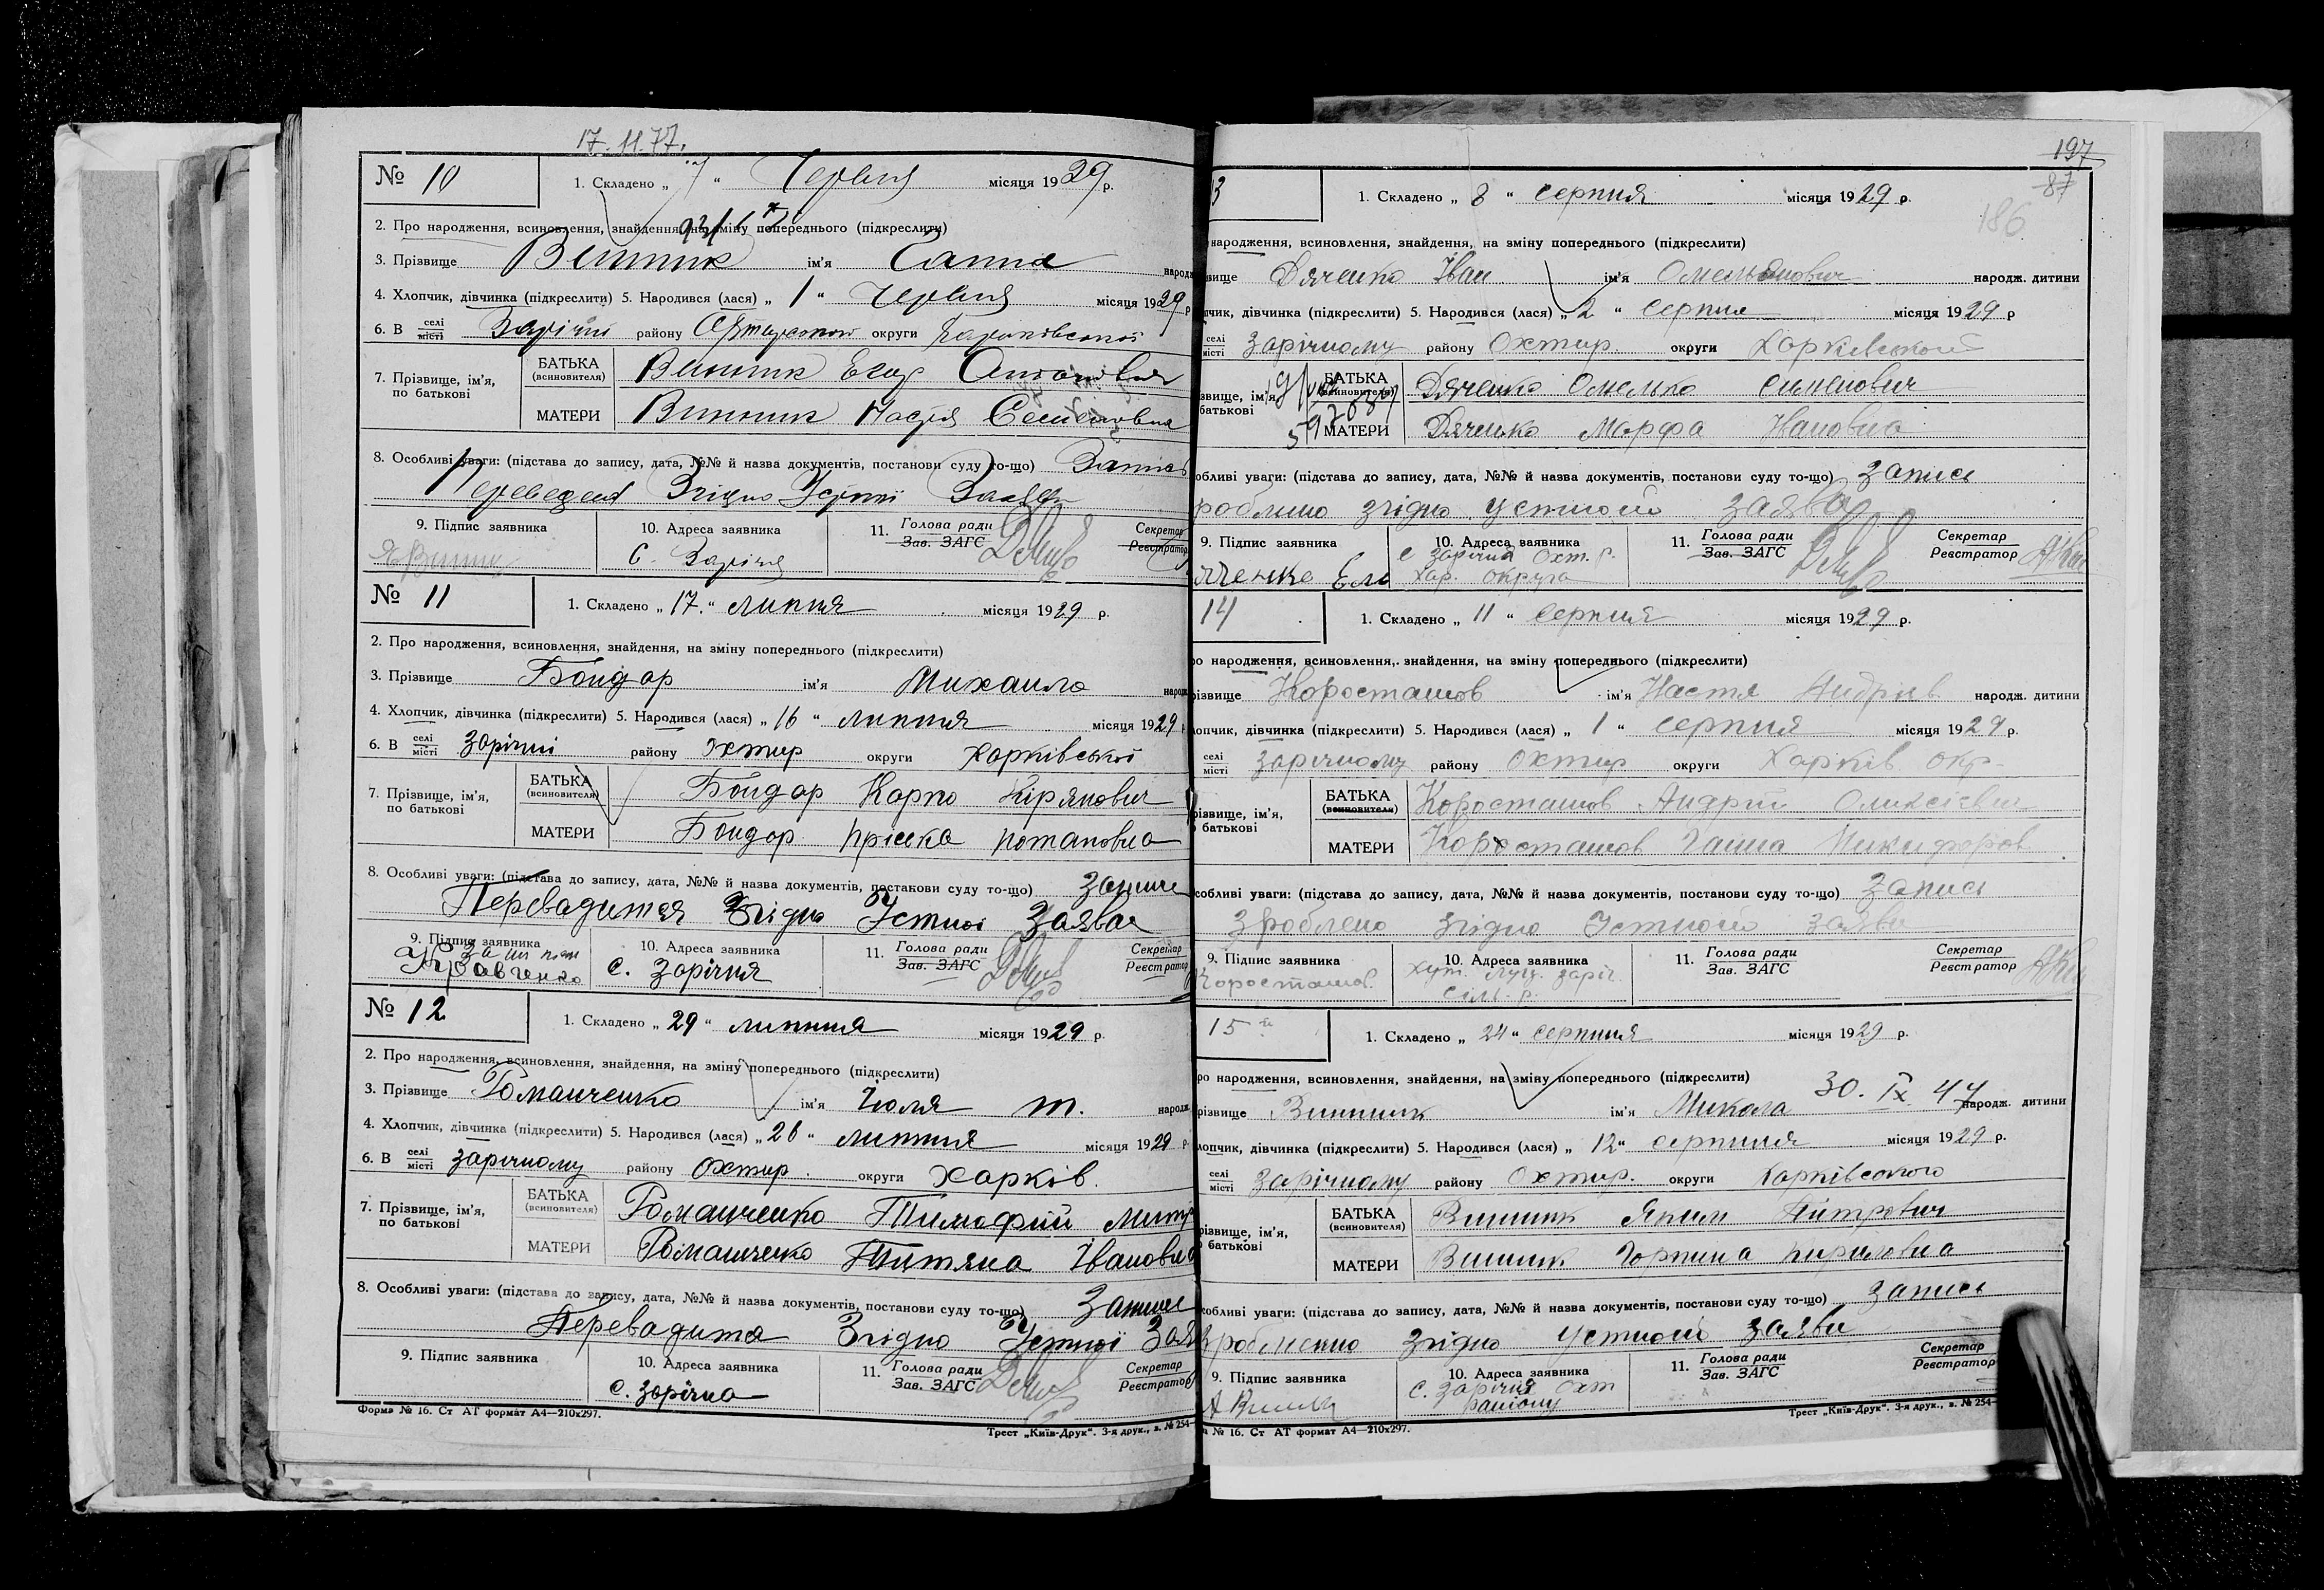 17.11.77.
№ 10
1. Складено „ 7 “ Червня місяця 1929 р.
2. Про народження, всиновлення, знайдення, на зміну попереднього (підкреслити)
3. Прізвище Винник ім'я Ганна народж
4. Хлопчик, дівчинка (підкреслити) 5. Народився (лася) „ 1 “ Червня місяця 1929 р
6. В селі місті Зарічні району Охтирского округи Харьківської
7. Прізвище, ім'я, по батькові
БАТЬКА (всиновителя) Винник Егор
МАТЕРИ Винник Настя Семеновна
8. Особливі уваги: (підстава до запису, дата, №№ й назва документів, постанови суду то-що) Запис
переведен Згідно Устної Заяви
9. Підпис заявника
10. Адреса заявника
11. Голова ради Зав. ЗАГС
Секретар Реєстратор
С. Заріча
№ 11
1. Складено „ 17. “ липня місяця 1929 р.
2. Про народження, всиновлення, знайдення, на зміну попереднього (підкреслити)
3. Прізвище Бондар ім'я Михаило народж
4. Хлопчик, дівчинка (підкреслити) 5. Народився (лася) „ 16 “ липня місяця 1929 р
6. В селі місті Зарічні району Охтир округи Харківської
7. Прізвище, ім'я, по батькові
БАТЬКА (всиновителя) Бондар Карпо Кірянович
МАТЕРИ Бондар Пріська Потаповна
8. Особливі уваги: (підстава до запису, дата, №№ й назва документів, постанови суду то-що) Запис
Переводится Згідно Устної Заяви
9. Підпис заявника
10. Адреса заявника
11. Голова ради Зав. ЗАГС
Секретар Реєстратор
Кравченко
с. Зарічня
№ 12
1. Складено „ 29 “ липня місяця 1929 р.
2. Про народження, всиновлення, знайдення, на зміну попереднього (підкреслити)
3. Прізвище Романченко ім'я Юля Т. народж
4. Хлопчик, дівчинка (підкреслити) 5. Народився (лася) „ 26 “ липня місяця 1929 р
6. В селі місті Зарічному району Охтир. округи Харків.
7. Прізвище, ім'я, по батькові
БАТЬКА (всиновителя) Романченко Тимофій Митр
МАТЕРИ Романченко Титяна Івановна
8. Особливі уваги: (підстава до запису, дата, №№ й назва документів, постанови суду то-що) Запис
Переводится Згідно Устної Зая
9. Підпис заявника
10. Адреса заявника
11. Голова ради Зав. ЗАГС
Секретар Реєстратор
с. Зарічна
Форма № 16. Ст АТ формат А4—210х297.
Трест „Київ-Друк“. 3-я друк., з. № 254—
197
87
186
3
1. Складено „ 8 “ серпня місяця 1929 р.
народження, всиновлення, знайдення, на зміну попереднього (підкреслити)
вище Дяченко Іван ім'я Омельянович народж. дитини
пчик, дівчинка (підкреслити) 5. Народився (лася) „ 2 “ серпня місяця 1929 р
селі місті Зарічному району Охтир. округи Харківської
звище, ім'я, батькові
БАТЬКА (всиновителя) Дяченко Омелько Сименович
МАТЕРИ Дяченко Марфа Івановна
обливі уваги: (підстава до запису, дата, №№ й назва документів, постанови суду то-що) Запись
роблино згідно устной заяви
9. Підпис заявника
10. Адреса заявника
11. Голова ради Зав. ЗАГС
Секретар Реєстратор
с Зарічна Охт. р.
Хар. округа
14
1. Складено „ 11 “ серпня місяця 1929 р.
ро народження, всиновлення, знайдення, на зміну попереднього (підкреслити)
різвище Коросташов ім'я Настя Андрів народж. дитини
лопчик, дівчинка (підкреслити) 5. Народився (лася) „ 1 “ серпня місяця 1929 р.
селі місті Зарічному району Охтир округи Харків. окр-
різвище, ім'я, батькові
БАТЬКА (всиновителя) Коросташов Андрій Оликсієвич
МАТЕРИ Коросташов Ганна Микифоров
собливі уваги: (підстава до запису, дата, №№ й назва документів, постанови суду то-що) Запись
зроблено згідно Устной заяви
9. Підпис заявника
10. Адреса заявника
11. Голова ради Зав. ЗАГС
Секретар Реєстратор
Коросташов.
хут. заріч.
Сіль. р.
15
1. Складено „ 24 “ серпня місяця 1929 р.
ро народження, всиновлення, знайдення, на зміну попереднього (підкреслити)
30. IX 47
різвище Винник ім'я Микола народж. дитини
лопчик, дівчинка (підкреслити) 5. Народився (лася) „ 12 “ серпня місяця 1929 р.
селі місті Зарічному району Охтир. округи Харківського
різвище, ім'я, батькові
БАТЬКА (всиновителя) Винник Яким Питрович
МАТЕРИ Винник Горпина Кириловна
собливі уваги: (підстава до запису, дата, №№ й назва документів, постанови суду то-що) Запись
Зробленно згідно устной заяви
9. Підпис заявника
10. Адреса заявника
11. Голова ради Зав. ЗАГС
Секретар Реєстратор
С. Зарічня Охт
району
№ 16. Ст АТ формат А4—210х297.
Трест „Київ-Друк“. 3-я друк., з. № 254—